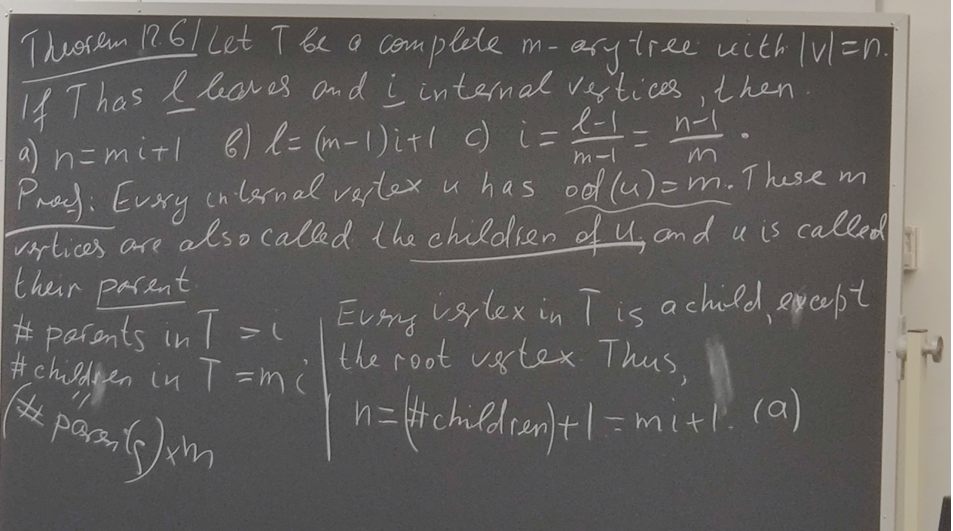 Theorem 12.6/ Let T be a complete m-ary tree with |V|=n.
If T has l leaves and i internal vertices, then.
a) n=mi+1 b) l=(m-1)i+1 c) i = l-1/m-1 = n-1/m .
Proof: Every internal vertex u has od(u)=m. These m
vertices are also called the children of u, and u is called
their parent
# parents in T = i
# children in T = mi
"
(# parents) x m
Every vertex in T is a child, except
the root vertex. Thus,
n=(#children)+1=mi+1. (a)